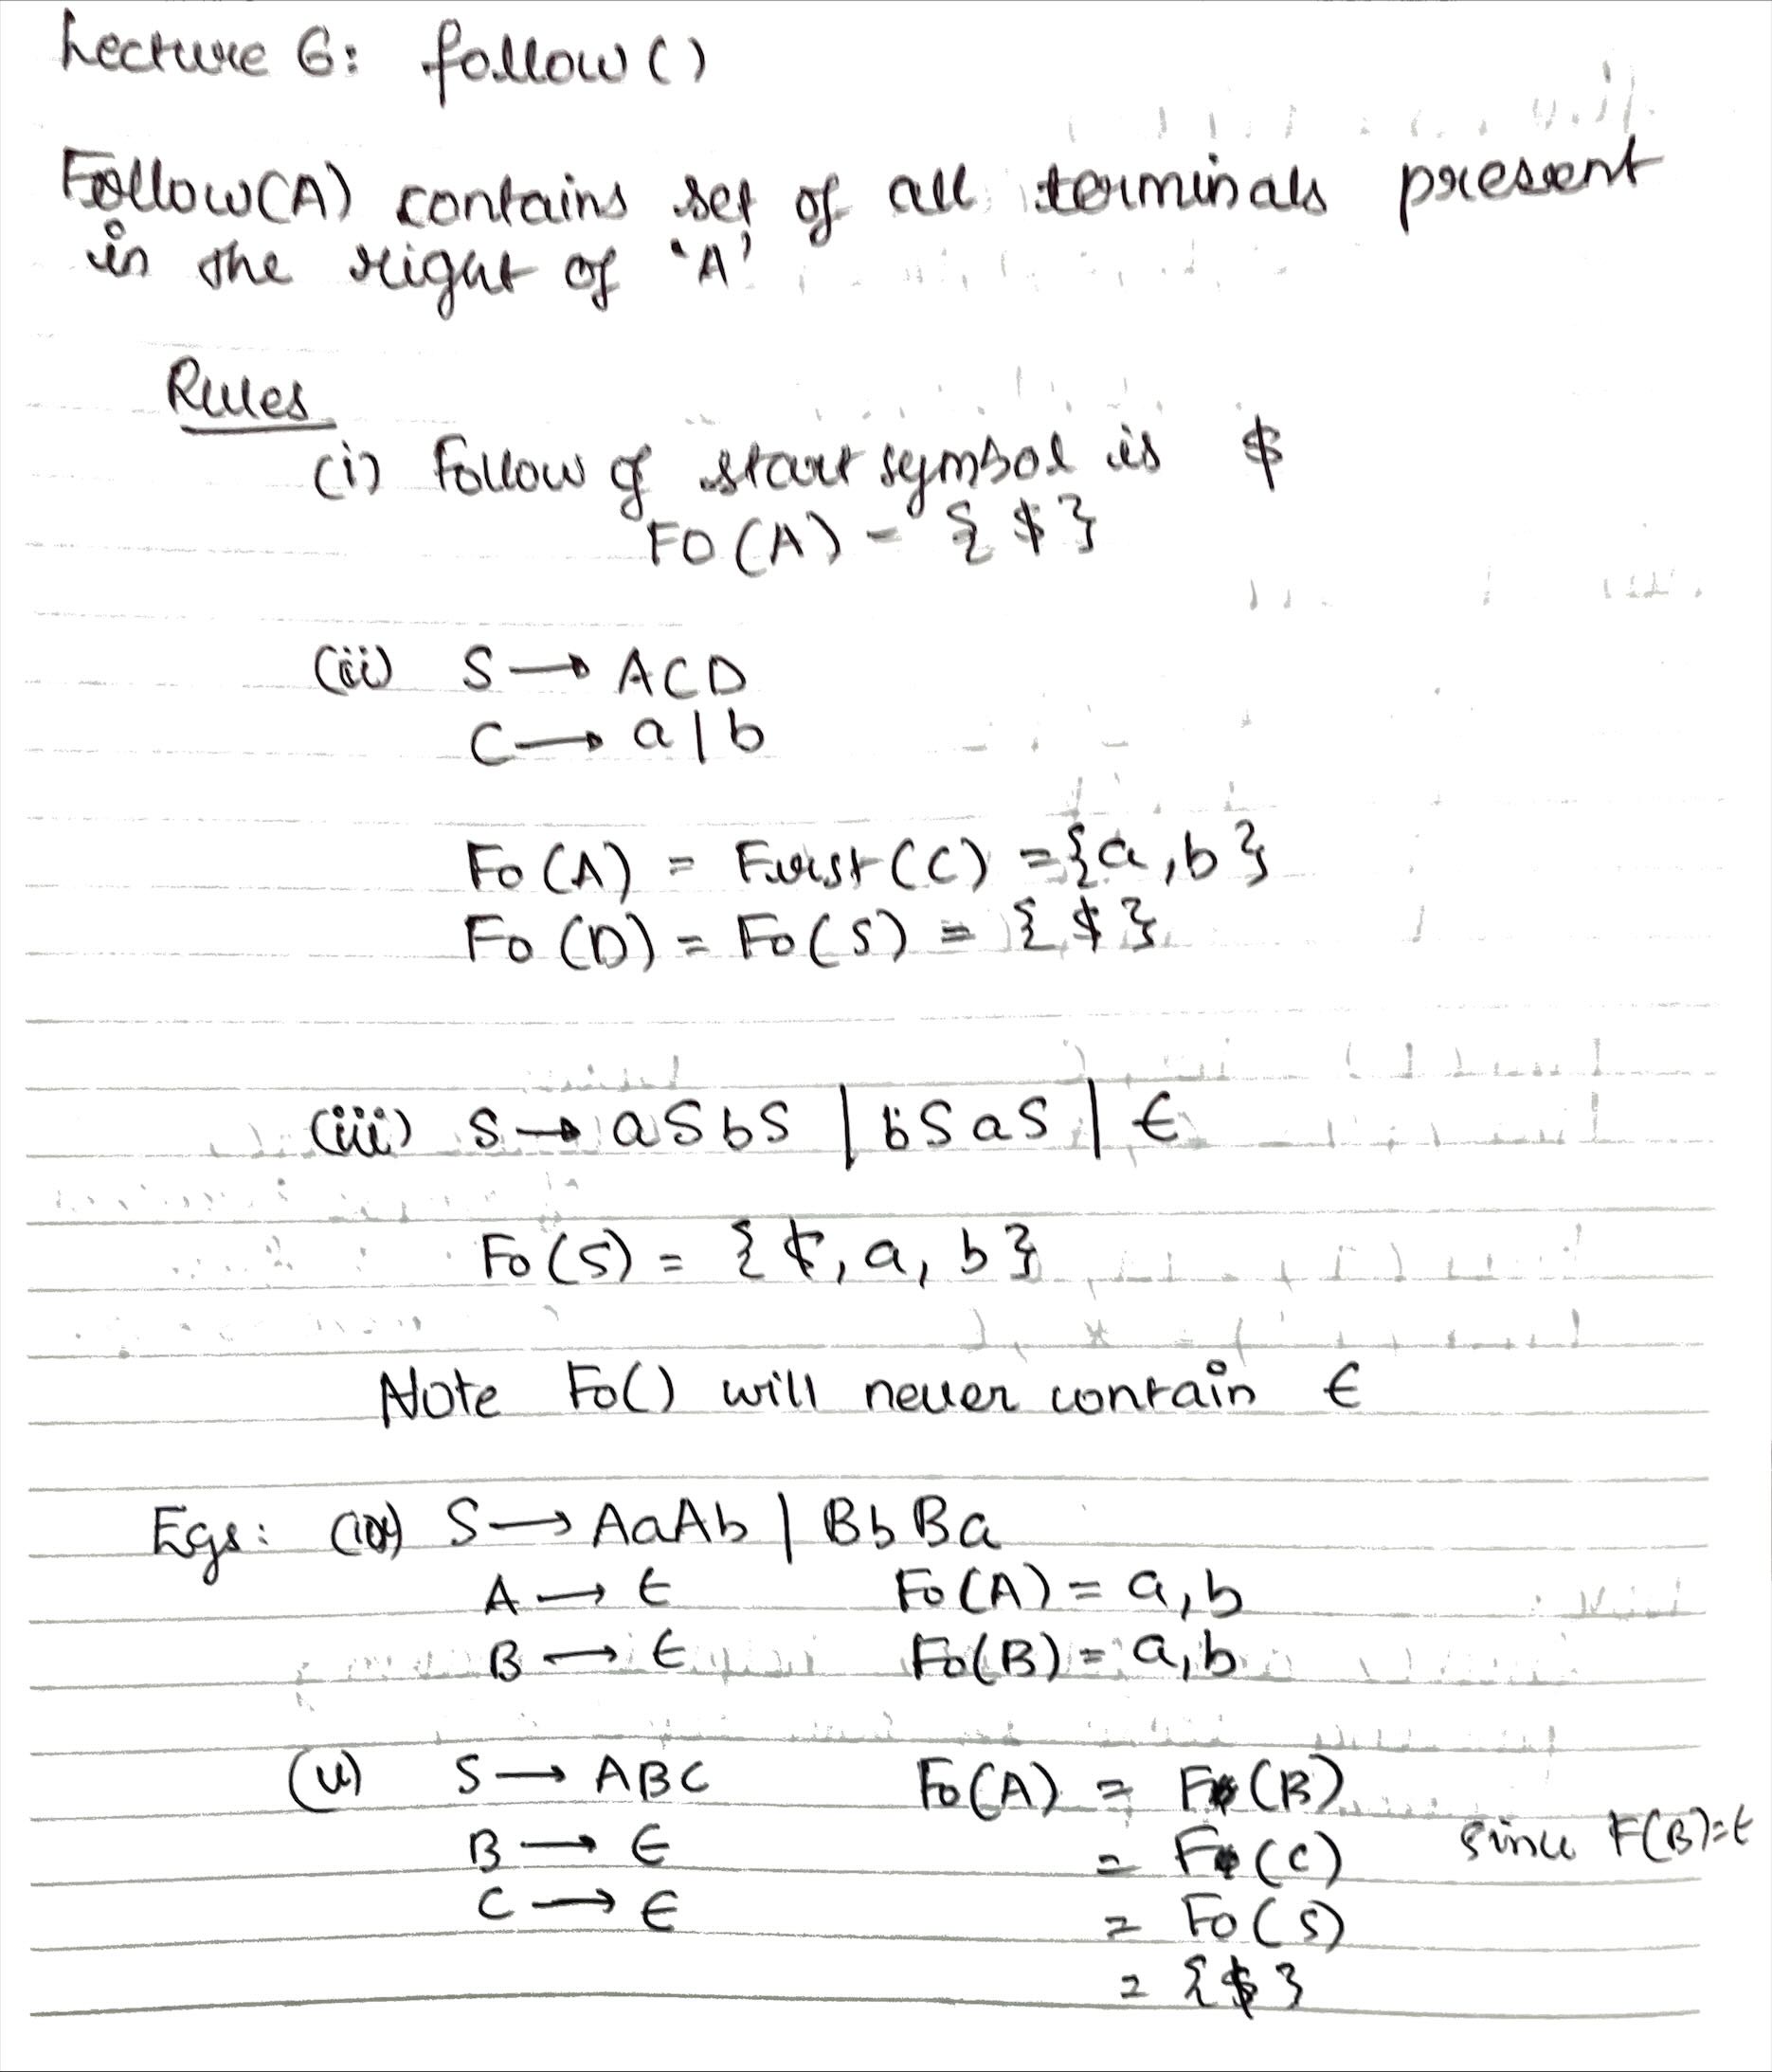 Lecture 6: follow()
Follow(A) contains set of all terminals present
in the right of 'A'
Rules
(i) Follow of start symbol is $
FO(A) = {$}
(ii) S → ACD
C → a|b
Fo(A) = First(C) = {a,b}
Fo(D) = Fo(S) = {$}
(iii) S → aSbS | bSaS | ε
Fo(S) = {$, a, b}
Note Fo() will never contain ε
Egs: (iv) S → AaAb | BbBa
A → ε Fo(A) = a,b
B → ε Fo(B) = a,b
(v) S → ABC Fo(A) = F(B)
B → ε = F(C) since F(B)=ε
C → ε = Fo(S)
= {$}